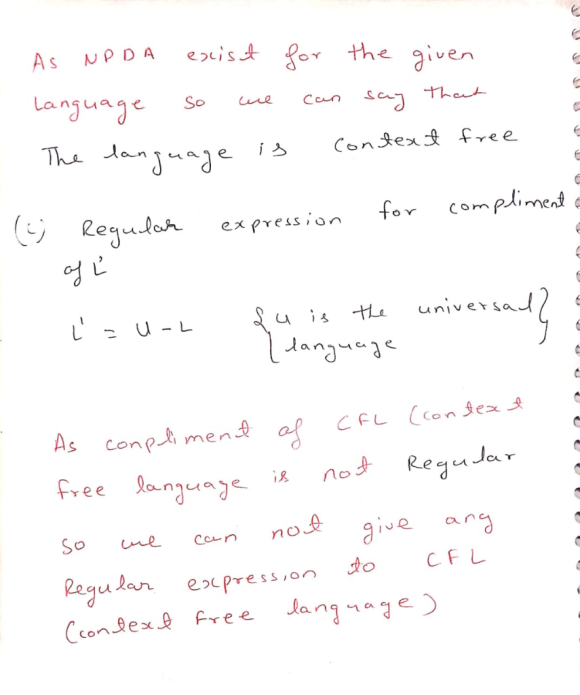 As NPDA exist for the given
Language so we can say that
The language is Context free
(i) Regular expression for compliment
of L'
L' = U - L { u is the universal
language }
As conpliment of CFL (context
free language is not Regular
so we can not give any
Regular expression to CFL
(context free language)